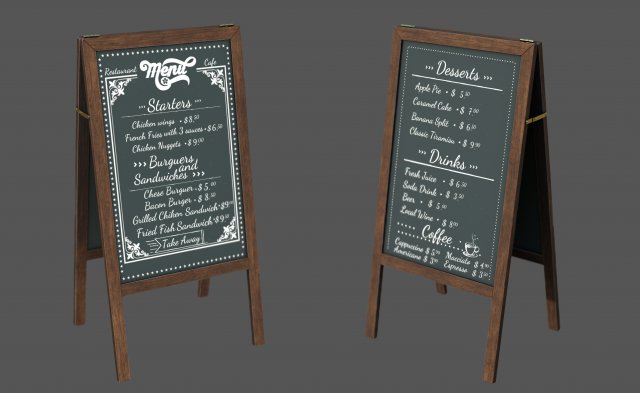 Restaurant Menu Cafe
Starters
Chicken wings • $8.50
French Fries with 3 sauces • $6.50
Chicken Nuggets • $9.00
Burguers
and
Sandwiches
Chese Burguer • $5.00
Bacon Burger • $8.50
Grilled Chiken Sandwich • $9.00
Fried Fish Sandwich • $9.50
Take Away
Desserts
Apple Pie • $5.50
Caramel Cake • $7.00
Banana Split • $6.50
Classic Tiramisu • $9.00
Drinks
Fresh Juice • $6.50
Soda Drink • $3.50
Beer • $5.00
Local Wine • $8.00
Coffee
Cappuccino $5.00 Macciato $4.00
Americano $3.00 Espresso $3.50